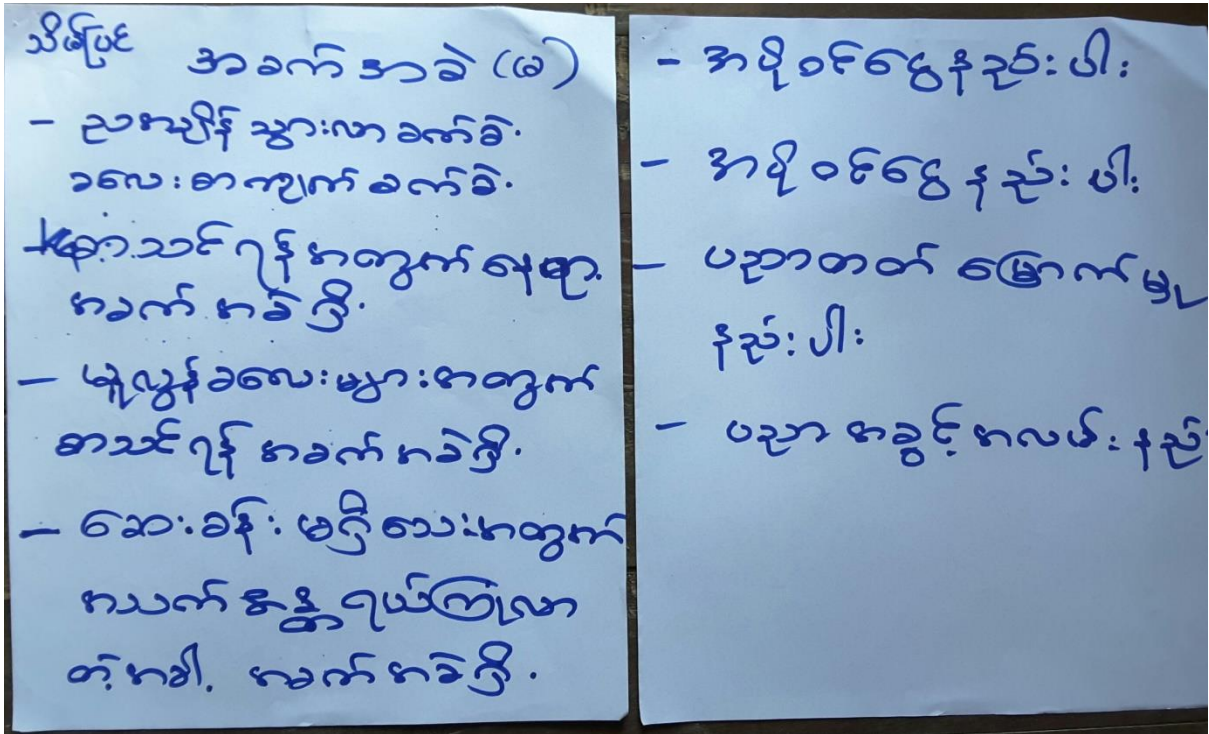 သိမ်ပြင်
အခက်အခဲ (မ)
- ညအချိန် သွားလာခက်ခဲ.
ခလေးစာကျက်ခက်ခဲ.
စာသင်ရန်အတွက် နေရာ.
အခက်အခဲရှိ.
- မူလွန်ခလေးများအတွက်
စာသင်ရန် အခက်အခဲရှိ.
- ဆေးခန်းမရှိသေးအတွက်
အသက်အန္တရယ်ကြုံလာ
တဲ့အခါ. အခက်အခဲရှိ.
- အပိုဝင်ငွေနည်းပါး
- အပိုဝင်ငွေနည်းပါး
- ပညာတတ် မြောက်မှု
နည်းပါး
- ပညာအခွင့်အလမ်းနည်